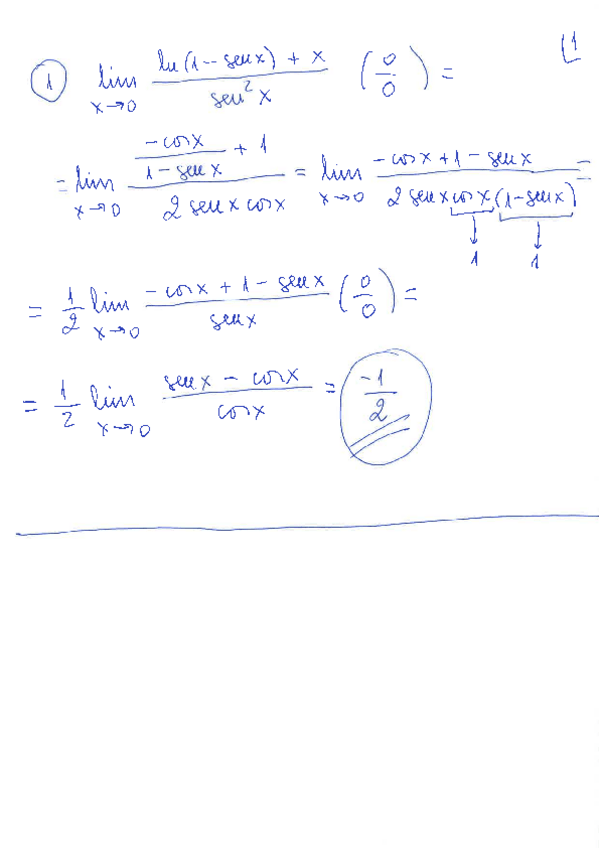 ⌊1
① lim x→0 (ln(1 - sen x) + x) / (sen² x) (0/0) =
= lim x→0 ((-cos x)/(1 - sen x) + 1) / (2 sen x cos x) = lim x→0 (-cos x + 1 - sen x) / (2 sen x cos x (1 - sen x)) =
↓ ↓
1 1
= 1/2 lim x→0 (-cos x + 1 - sen x) / (sen x) (0/0) =
= 1/2 lim x→0 (sen x - cos x) / (cos x) = -1/2